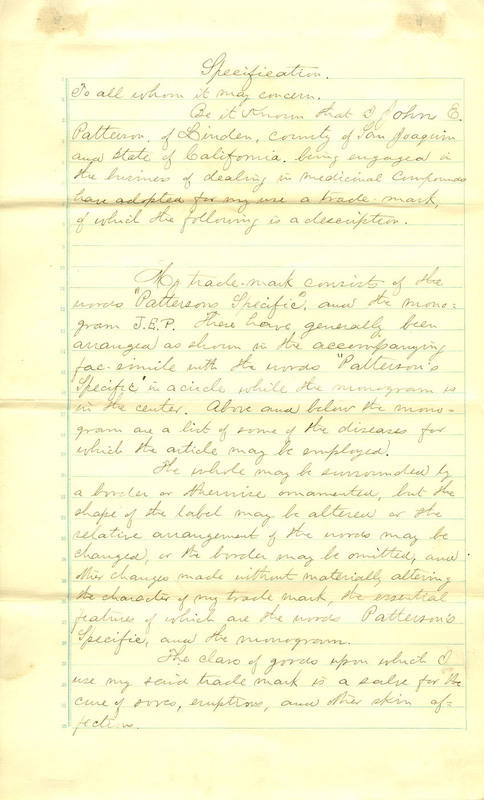 Specification.
To all whom it may concern.
Be it Known that I John E.
Patterson. of Linden, County of San Joaquin
and State of California. being engaged in
the business of dealing in medicinal Compounds
have adopted for my use a trade-mark,
of which the following is a description.
My trade-mark consists of the
words "Pattersons Specific", and the mono-
gram J.E.P. These have generally been
arranged as shown in the accompanying
fac-simile with the words "Patterson's
Specific" in a circle while the monogram is
in the center. Above and below the mono-
gram are a list of some of the diseases for
which the article may be employed.
The whole may be surrounded by
a border or otherwise ornamented, but the
shape of the label may be altered or the
relative arrangement of the words may be
changed, or the border may be omitted, and
other changes made without materially altering
the character of my trade mark, the essential
features of which are the words Patterson's
Specific, and the monogram.
The class of goods upon which I
use my said trade mark is a salve for the
cure of sores, eruptions, and other skin af-
fections.